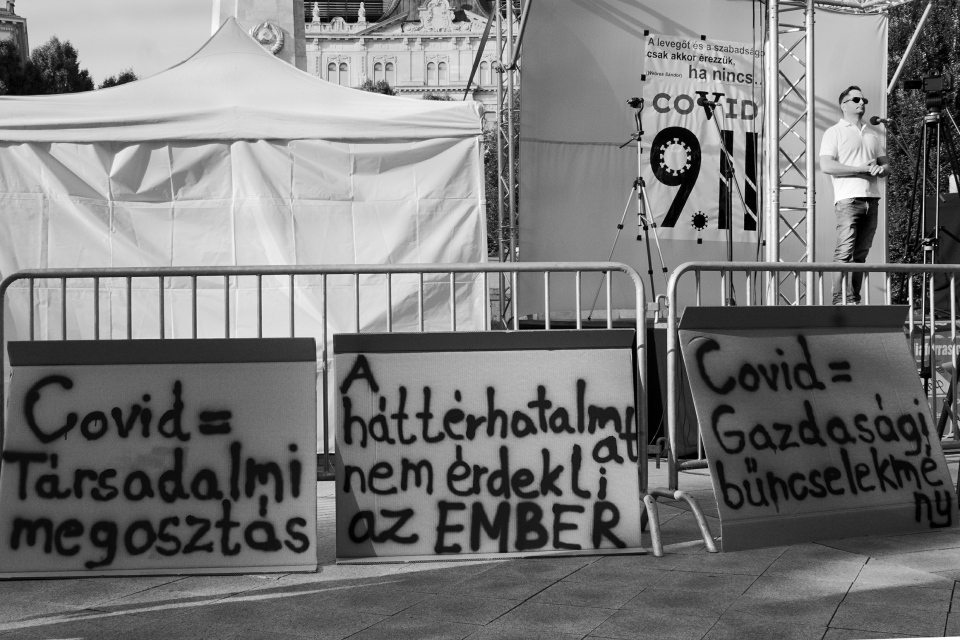 A levegőt és a szabadságo
csak akkor érezzük,
ha nincs..
COVID
9.11
Covid =
Társadalmi
megosztás
A
háttérhatalm
at
nem érdekli
az EMBER
Covid =
Gazdasági
bűncselekmé
ny